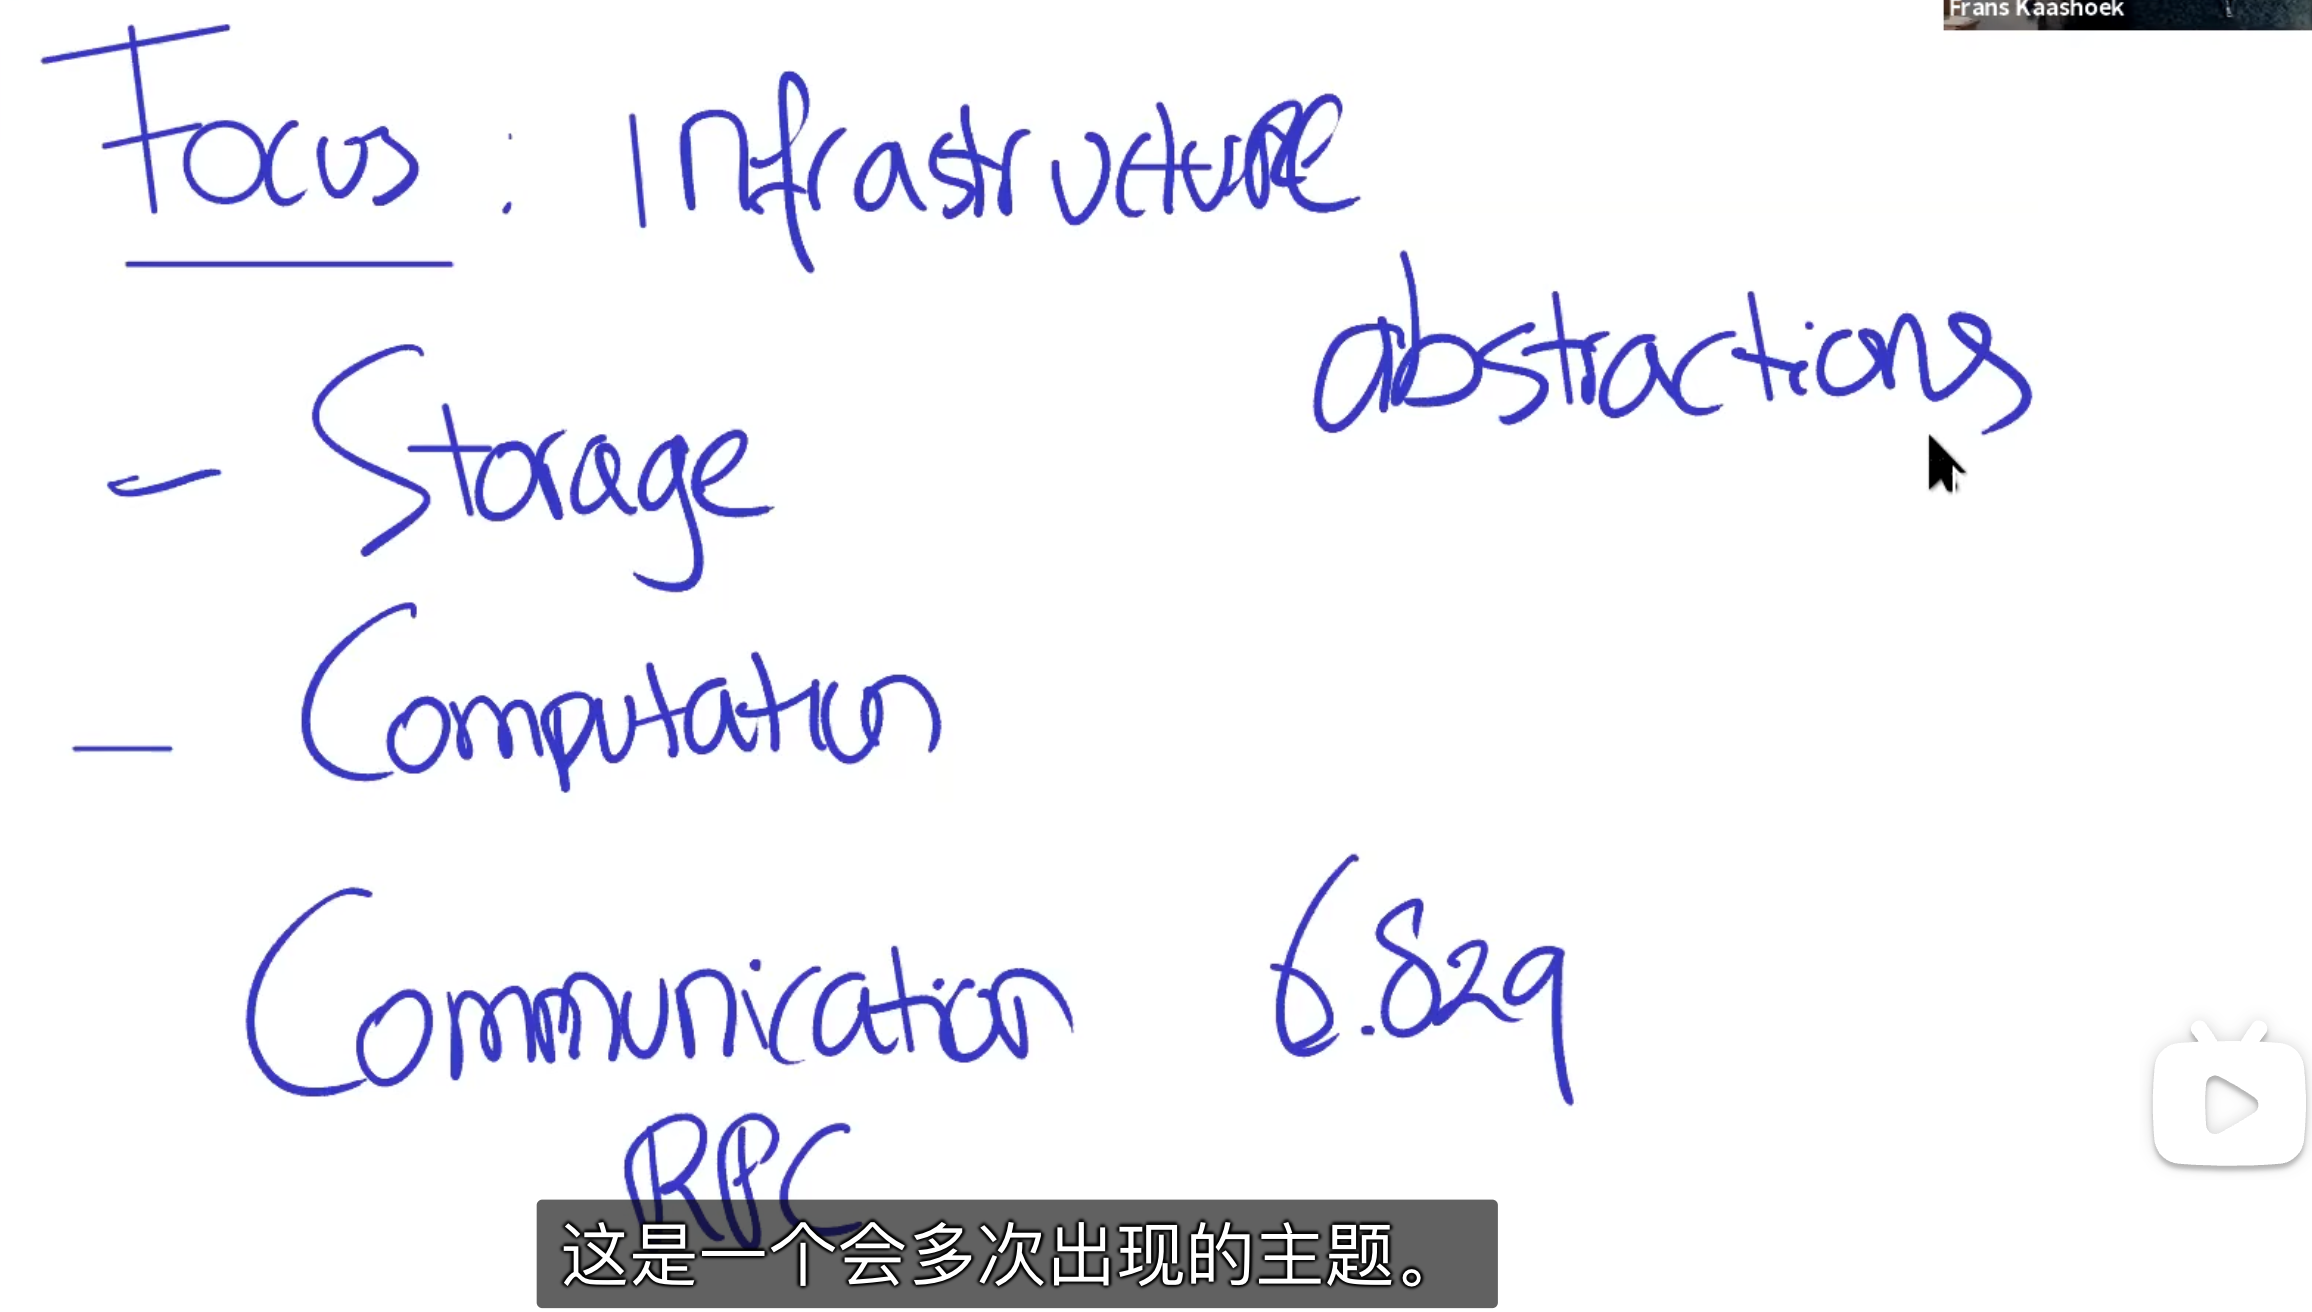 Frans Kaashoek
Focus : Infrastructure
abstractions
- Storage
- Computation
Communication 6.829
RPC
这是一个会多次出现的主题。